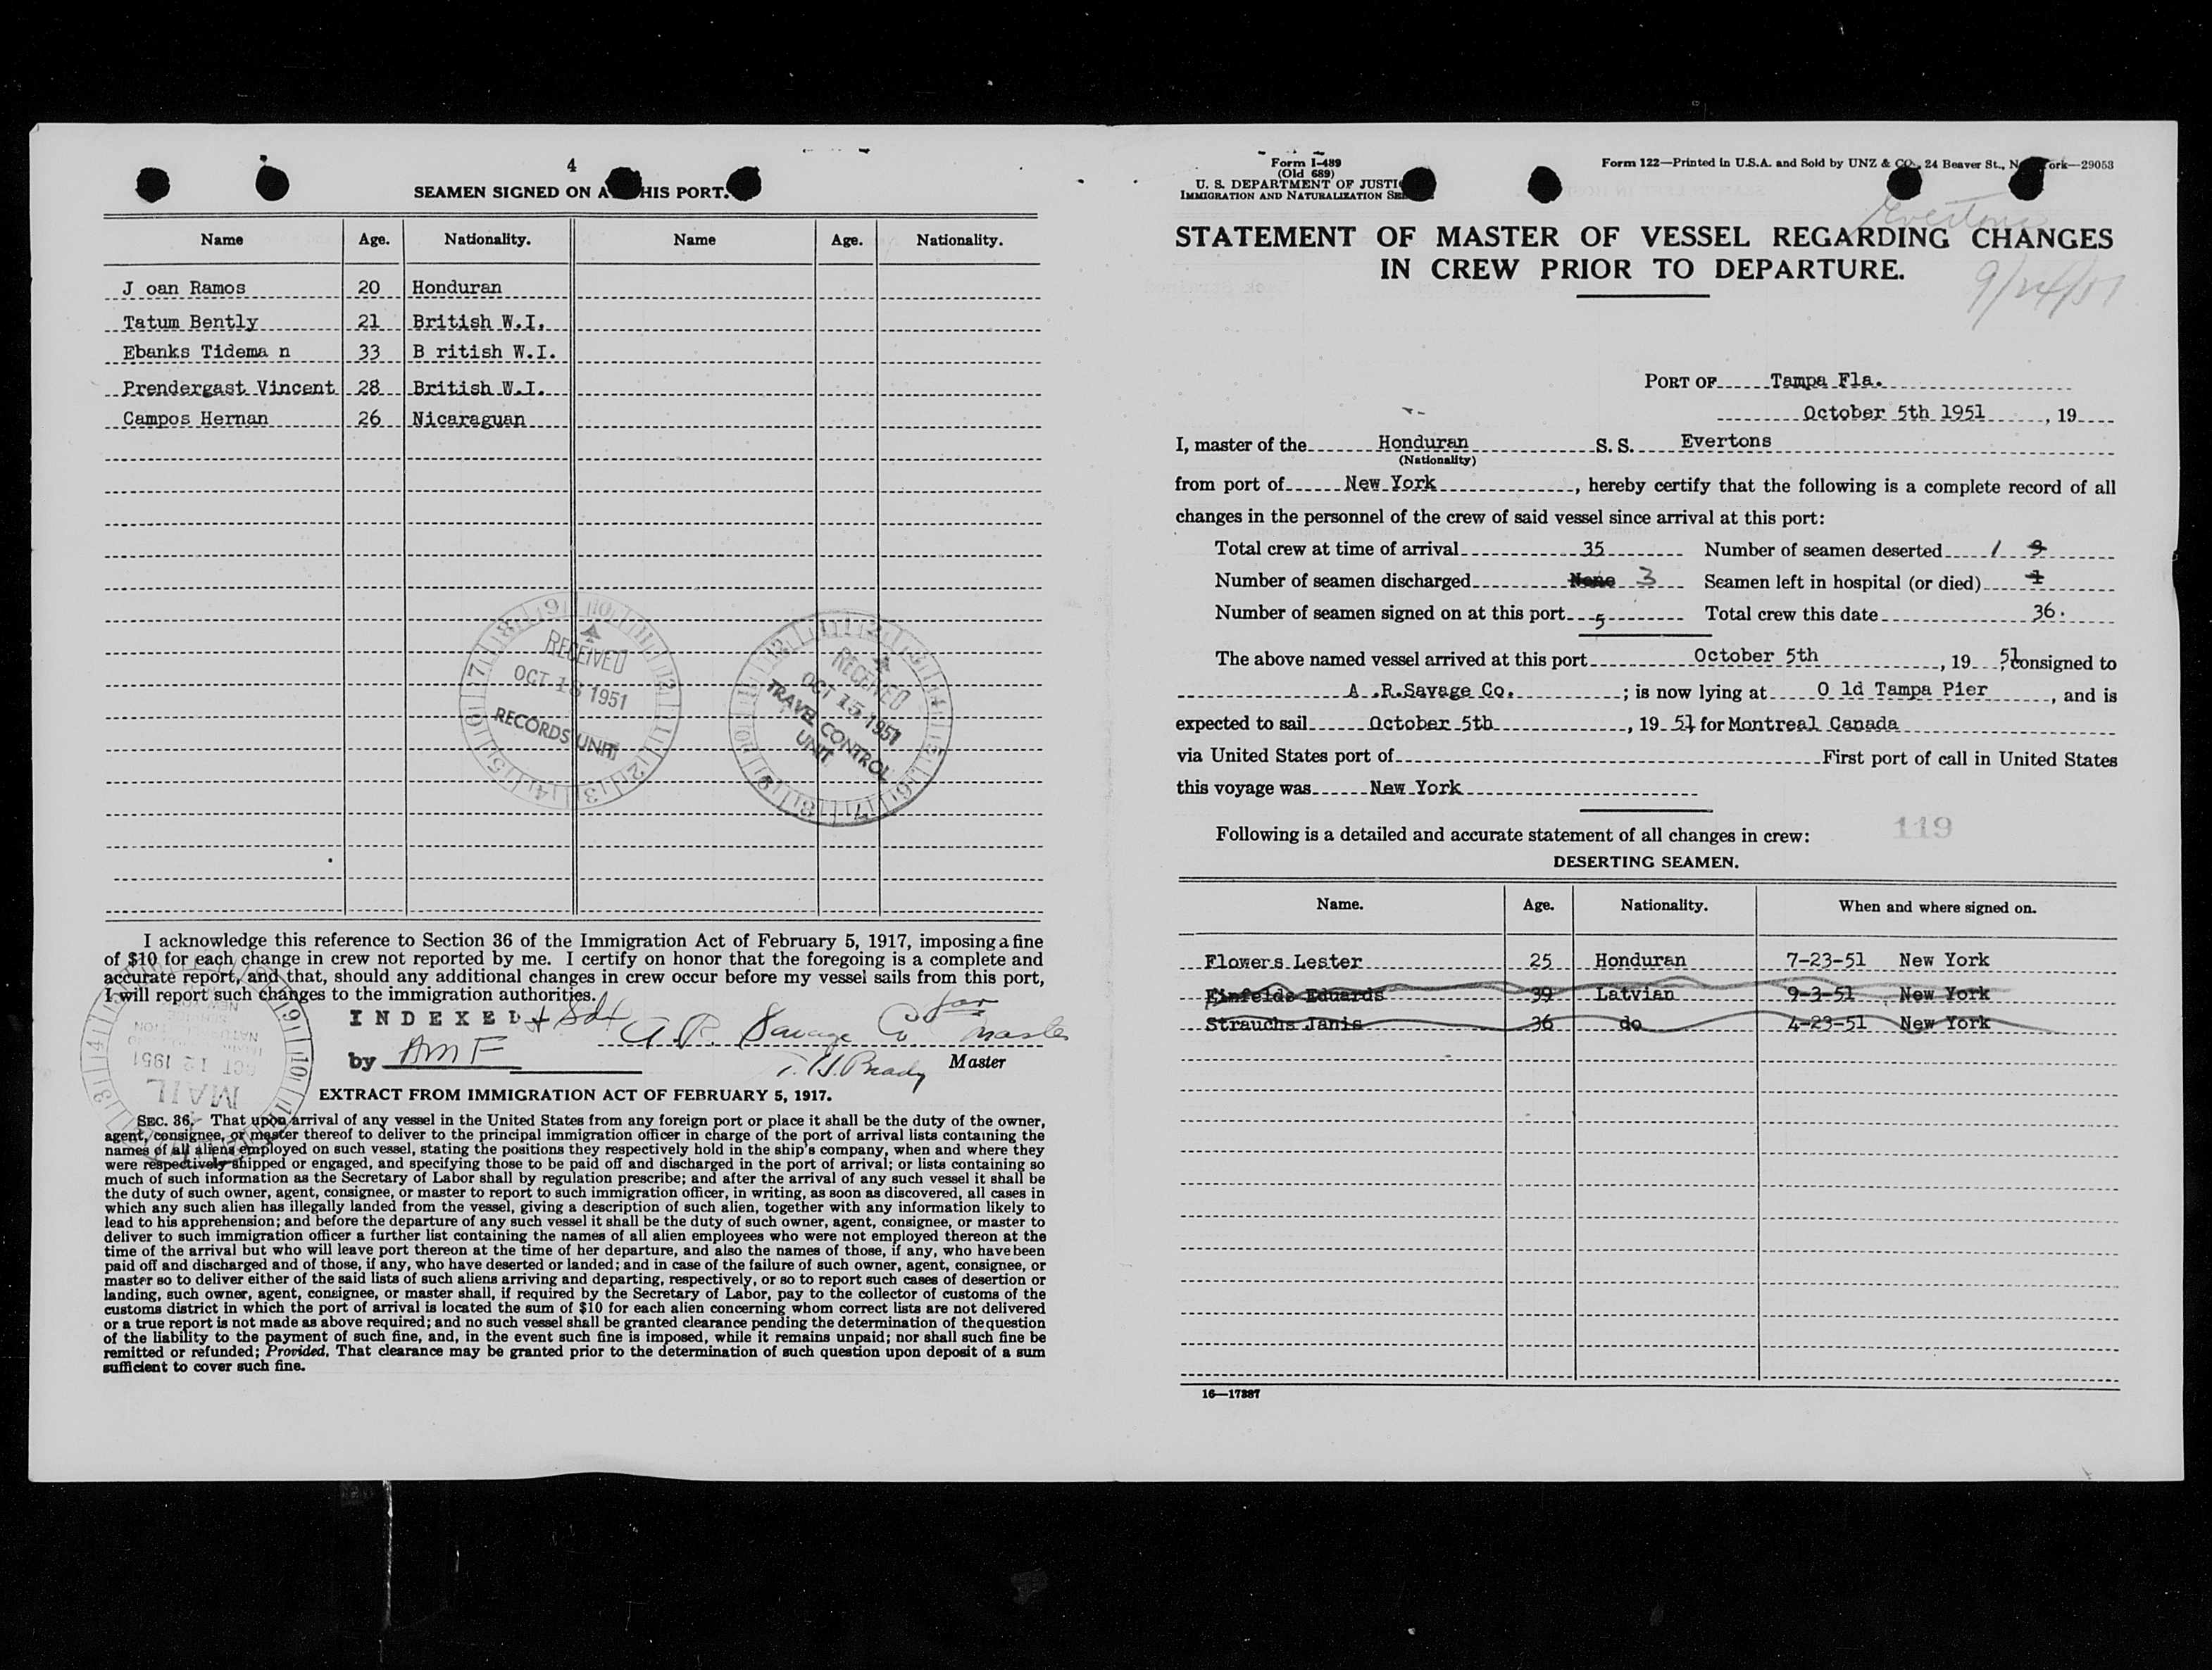 4
SEAMEN SIGNED ON A HIS PORT.
Name Age. Nationality. Name Age. Nationality.
J oan Ramos 20 Honduran
Tatum Bently 21 British W.I.
Ebanks Tidema n 33 B ritish W.I.
Prendergast Vincent 28 British W.I.
Campos Hernan 26 Nicaraguan
RECEIVED
OCT 15 1951
RECORDS UNIT
RECEIVED
OCT 15 1951
TRAVEL CONTROL
UNIT
I acknowledge this reference to Section 36 of the Immigration Act of February 5, 1917, imposing a fine
of $10 for each change in crew not reported by me. I certify on honor that the foregoing is a complete and
accurate report, and that, should any additional changes in crew occur before my vessel sails from this port,
I will report such changes to the immigration authorities.
INDEXED
A. R. Savage Co for master
by AMF
Master
OCT 12 1951
MAIL
EXTRACT FROM IMMIGRATION ACT OF FEBRUARY 5, 1917.
SEC. 36. That upon arrival of any vessel in the United States from any foreign port or place it shall be the duty of the owner,
agent, consignee, or master thereof to deliver to the principal immigration officer in charge of the port of arrival lists containing the
names of all aliens employed on such vessel, stating the positions they respectively hold in the ship's company, when and where they
were respectively shipped or engaged, and specifying those to be paid off and discharged in the port of arrival; or lists containing so
much of such information as the Secretary of Labor shall by regulation prescribe; and after the arrival of any such vessel it shall be
the duty of such owner, agent, consignee, or master to report to such immigration officer, in writing, as soon as discovered, all cases in
which any such alien has illegally landed from the vessel, giving a description of such alien, together with any information likely to
lead to his apprehension; and before the departure of any such vessel it shall be the duty of such owner, agent, consignee, or master to
deliver to such immigration officer a further list containing the names of all alien employees who were not employed thereon at the
time of the arrival but who will leave port thereon at the time of her departure, and also the names of those, if any, who have been
paid off and discharged and of those, if any, who have deserted or landed; and in case of the failure of such owner, agent, consignee, or
master so to deliver either of the said lists of such aliens arriving and departing, respectively, or so to report such cases of desertion or
landing, such owner, agent, consignee, or master shall, if required by the Secretary of Labor, pay to the collector of customs of the
customs district in which the port of arrival is located the sum of $10 for each alien concerning whom correct lists are not delivered
or a true report is not made as above required; and no such vessel shall be granted clearance pending the determination of the question
of the liability to the payment of such fine, and, in the event such fine is imposed, while it remains unpaid; nor shall such fine be
remitted or refunded; Provided, That clearance may be granted prior to the determination of such question upon deposit of a sum
sufficient to cover such fine.
Form I-489
(Old 689)
U. S. DEPARTMENT OF JUSTI
IMMIGRATION AND NATURALIZATION SE
Form 122—Printed in U.S.A. and Sold by UNZ & CO., 24 Beaver St., N ork—29053
Evertons
STATEMENT OF MASTER OF VESSEL REGARDING CHANGES
IN CREW PRIOR TO DEPARTURE.
9/24/51
PORT OF Tampa Fla.
October 5th 1951, 19
I, master of the Honduran S. S. Evertons
(Nationality)
from port of New York, hereby certify that the following is a complete record of all
changes in the personnel of the crew of said vessel since arrival at this port:
Total crew at time of arrival 35 Number of seamen deserted 1 3
Number of seamen discharged None 3 Seamen left in hospital (or died) 1
Number of seamen signed on at this port 5 Total crew this date 36.
The above named vessel arrived at this port October 5th, 19 51, consigned to
A .R.Savage Co. ; is now lying at O ld Tampa Pier, and is
expected to sail October 5th, 19 51 for Montreal Canada
via United States port of First port of call in United States
this voyage was New York
119
Following is a detailed and accurate statement of all changes in crew:
DESERTING SEAMEN.
Name. Age. Nationality. When and where signed on.
Flowers Lester 25 Honduran 7-23-51 New York
Einfelds Eduards 39 Latvian 9-3-51 New York
Strauchs Janis 36 do 4-23-51 New York
16—17887